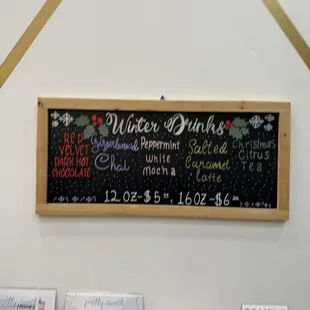 Winter Drinks
RED
VELVET
DARK HOT
CHOCOLATE
Gingerbread
Chai
Peppermint
white
mocha
Salted
Caramel
Latte
Christmas
Citrus
Tea
12oz-$5 16oz-$6
pretty sweet
pretty sweet